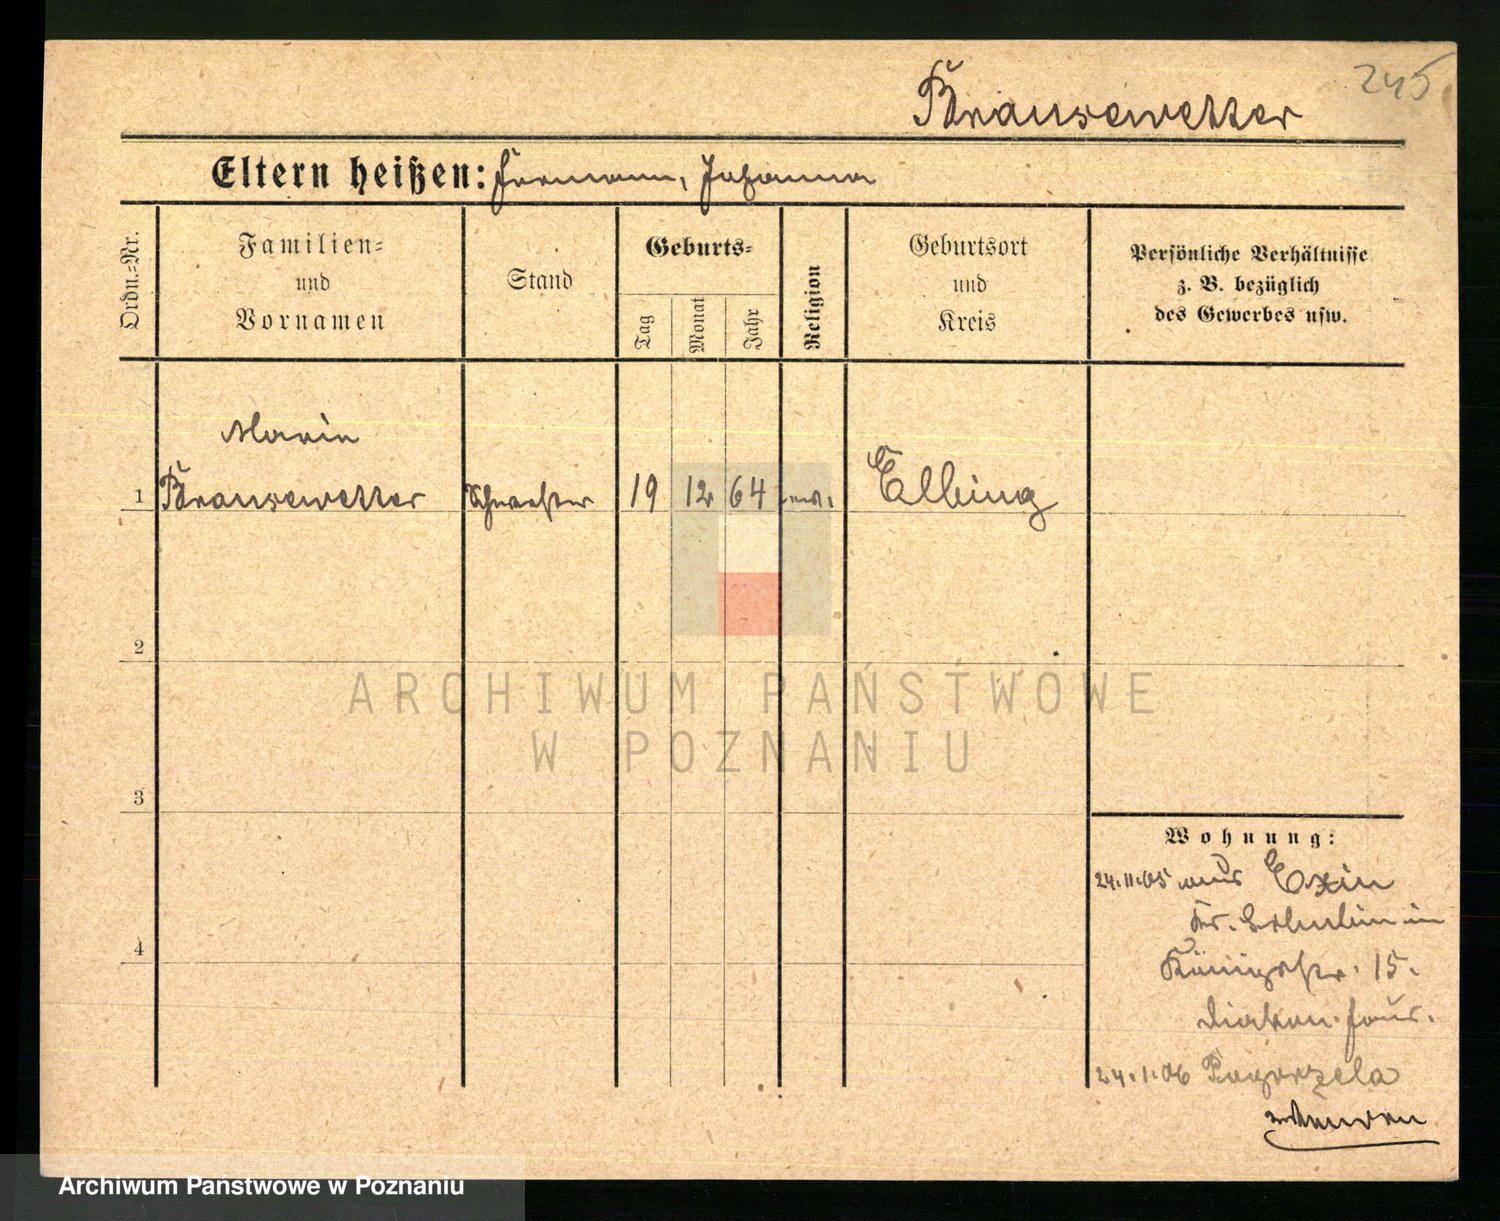 245
Brausewetter
Eltern heißen: Hermann, Johanna
Ordn.-Nr.
Familien-
und
Vornamen
Stand
Geburts-
Tag
Monat
Jahr
Religion
Geburtsort
und
Kreis
Persönliche Verhältnisse
z. B. bezüglich
des Gewerbes usw.
Marie
1 Brausewetter Schwester 19 12 64 ev. Elbing
2
ARCHIWUM PAŃSTWOWE
W POZNANIU
3
Wohnung:
24.11.05 aus Exin
Kr. Schubin in
Königstr. 15.
4
Diakon. Haus.
24.1.06 Pogorzela
Archiwum Państwowe w Poznaniu